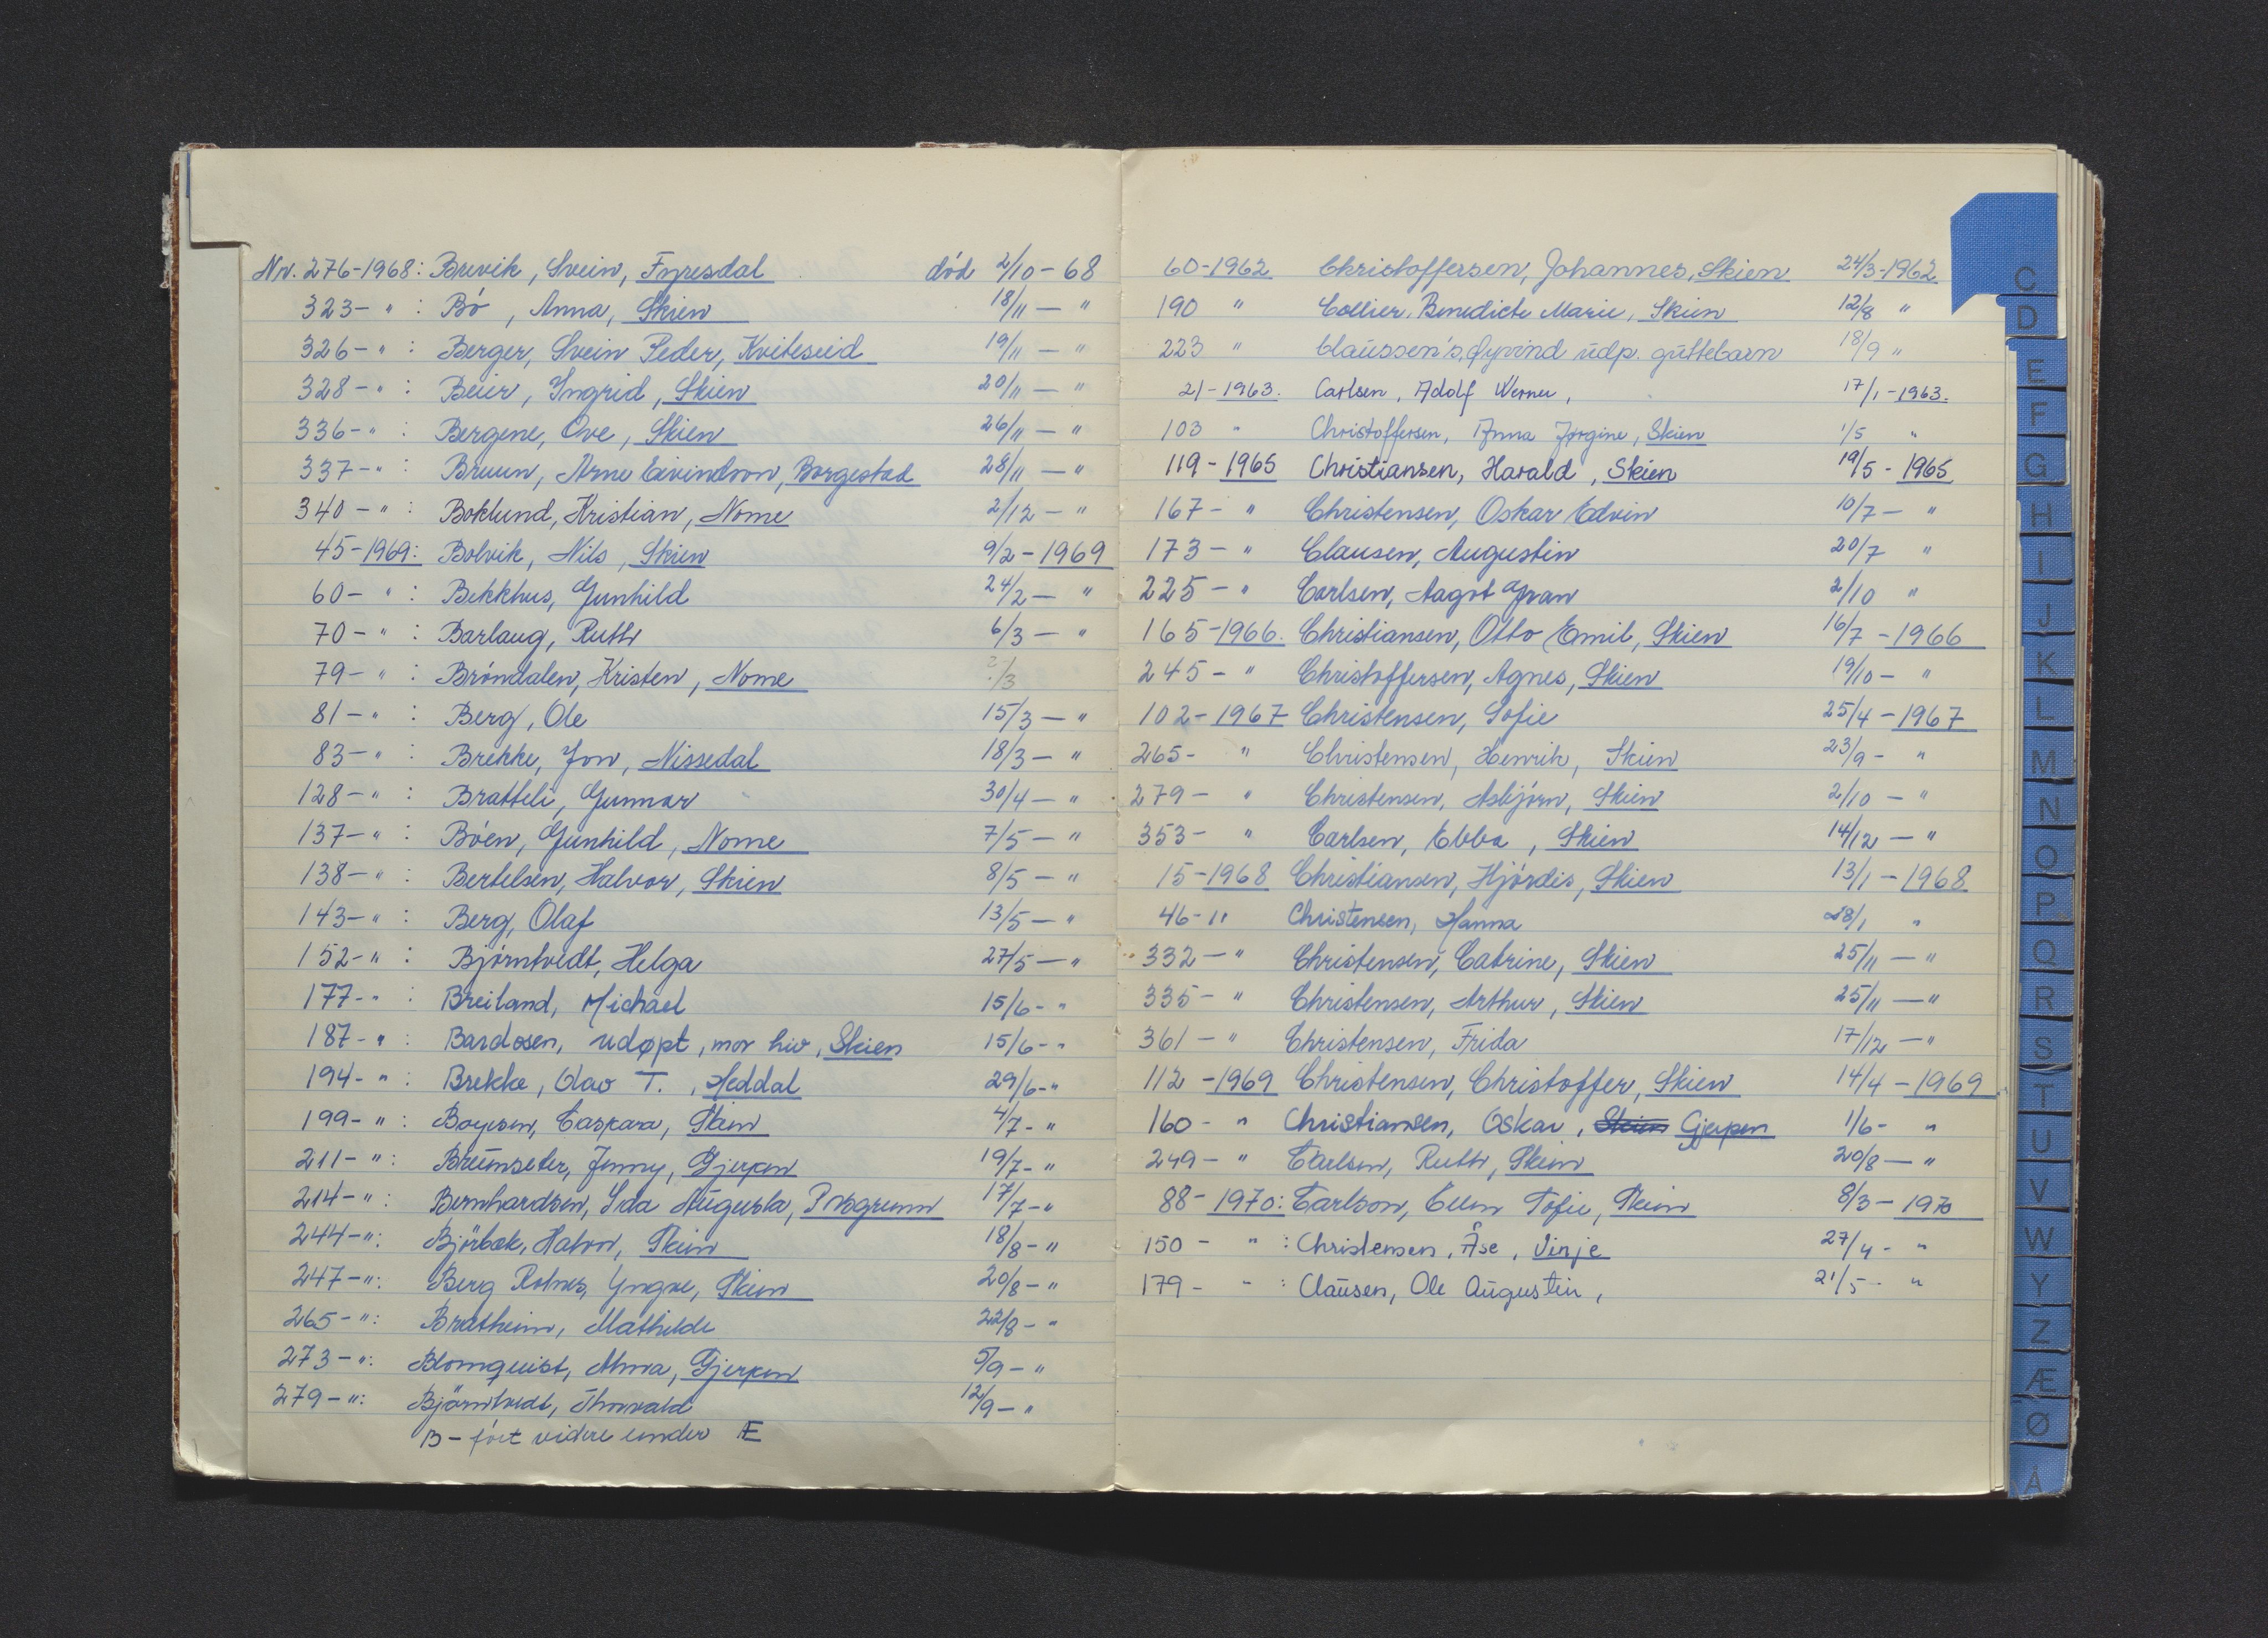 Nr. 276-1968: Brevik, Svein, Fyresdal død 2/10-68
323- " : Bö, Anna, Skien 18/11 - "
326- " : Berger, Svein Peder, Kviteseid 19/11 - "
328- " : Beier, Ingrid, Skien 20/11 - "
336- " : Bergene, Ove, Skien 26/11 - "
337- " : Bruun, Arne Eivindson, Borgestad 28/11 - "
340- " : Boklund, Kristian, Nome 2/12 - "
45-1969: Bolvik, Nils, Skien 9/2-1969
60- " : Bekkhus, Gunhild 24/2 - "
70- " : Barlaug, Ruth 6/3 - "
79- " : Bröndalen, Kristen, Nome ?/3
81- " : Berg, Ole 15/3 - "
83- " : Brekke, Jon, Nissedal 18/3 - "
128- " : Bratteli, Gunnar 30/4 - "
137- " : Böen, Gunhild, Nome 7/5 - "
138- " : Bertelsen, Halvor, Skien 8/5 - "
143- " : Berg, Olaf 13/5 - "
152- " : Björntvedt, Helga 27/5 - "
177- " : Breiland, Michael 15/6 - "
187- " : Bardosen, udøpt, mor liv, Skien 15/6 - "
194- " : Brekke, Olav T., Heddal 29/6 - "
199- " : Boyesen, Caspara, Skien 4/7 - "
211- " : Brumseter, Jenny, Gjerpen 19/7 - "
214- " : Bernhardsen, Ida Augusta, Porsgrunn 17/7 - "
244- " : Björbæk, Halvor, Skien 18/8 - "
247- " : Berg Rolnes, Yngve, Skien 20/8 - "
265- " : Bratheim, Mathilde 22/8 - "
273- " : Blomquist, Alma, Gjerpen 5/9 - "
279- " : Björntvedt, Thorvald 12/9 - "
B - ført videre under Æ
60-1962 Christoffersen, Johannes, Skien 24/3-1962
190 " Collier, Benedicte Marie, Skien 12/8 "
223 " Claussen's, Øyvind udp. guttebarn 18/9 "
21-1963. Carlsen, Adolf Werner, 17/1-1963.
103 " Christoffersen, Anna Jørgine, Skien 1/5 "
119-1965 Christiansen, Harald, Skien 19/5-1965
167- " Christensen, Oskar Edvin 10/7 - "
173- " Clausen, Augustin 20/7 "
225- " Carlsen, Aagot Gran 2/10 "
165-1966. Christiansen, Otto Emil, Skien 16/7-1966
245- " Christoffersen, Agnes, Skien 19/10 - "
102-1967 Christensen, Sofie 25/4-1967
265- " Christensen, Henrik, Skien 23/9 - "
279- " Christensen, Asbjörn, Skien 2/10 - "
353- " Carlsen, Ebba, Skien 14/12 - "
15-1968 Christiansen, Hjördis, Skien 13/1-1968
46- " Christensen, Hanna 28/1 "
332- " Christensen, Catrine, Skien 25/11 - "
335- " Christensen, Arthur, Skien 25/11 - "
361- " Christensen, Frida 17/12 - "
112-1969 Christensen, Christoffer, Skien 14/4-1969
160- " Christiansen, Oskar, Skien Gjerpen 1/6 - "
249- " Carlsen, Ruth, Skien 20/8 - "
88-1970: Carlson, Ellen Sofie, Skien 8/3-1970
150- " : Christensen, Åse, Vinje 27/4 - "
179- " : Clausen, Ole Augustin, 21/5 - "
C
D
E
F
G
H
I
J
K
L
M
N
O
P
Q
R
S
T
U
V
W
Y
Z
Æ
Ø
Å